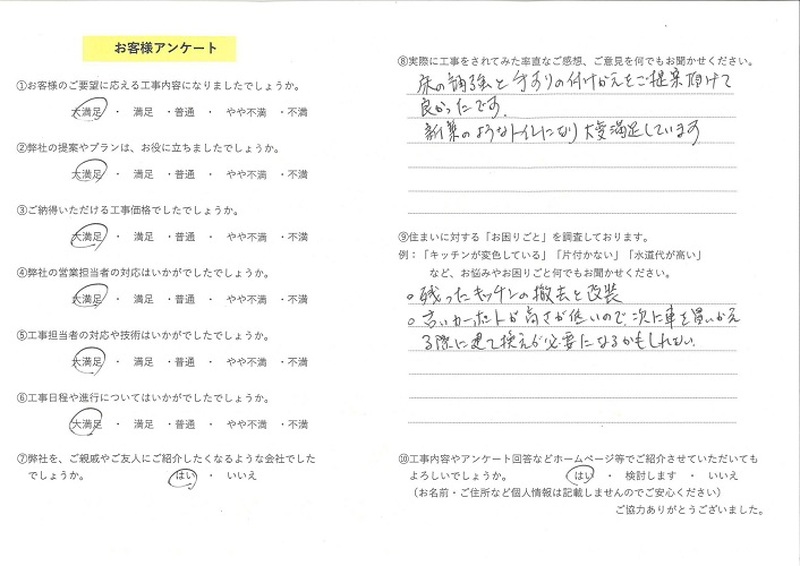 お客様アンケート
①お客様のご要望に応える工事内容になりましたでしょうか。
大満足 ・ 満足 ・普通 ・ やや不満 ・不満
②弊社の提案やプランは、お役に立ちましたでしょうか。
大満足 ・ 満足 ・普通 ・ やや不満 ・不満
③ご納得いただける工事価格でしたでしょうか。
大満足 ・ 満足 ・普通 ・ やや不満 ・不満
④弊社の営業担当者の対応はいかがでしたでしょうか。
大満足 ・ 満足 ・普通 ・ やや不満 ・不満
⑤工事担当者の対応や技術はいかがでしたでしょうか。
大満足 ・ 満足 ・普通 ・ やや不満 ・不満
⑥工事日程や進行についてはいかがでしたでしょうか。
大満足 ・ 満足 ・普通 ・ やや不満 ・不満
⑦弊社を、ご親戚やご友人にご紹介したくなるような会社でした
でしょうか。 はい ・ いいえ
⑧実際に工事をされてみた率直なご感想、ご意見を何でもお聞かせください。
床の補強と手すりの付けかえをご提案頂けて
良かったです。
新築のようなトイレになり大変満足しています
⑨住まいに対する「お困りごと」を調査しております。
例：「キッチンが変色している」「片付かない」「水道代が高い」
など、お悩みやお困りごと何でもお聞かせください。
○残ったキッチンの撤去と改装
○古いカーポートが高さが低いので、次に車を買いかえ
る際に建て換えが必要になるかもしれない。
⑩工事内容やアンケート回答などホームページ等でご紹介させていただいても
よろしいでしょうか。 はい ・ 検討します ・ いいえ
（お名前・ご住所など個人情報は記載しませんのでご安心ください）
ご協力ありがとうございました。